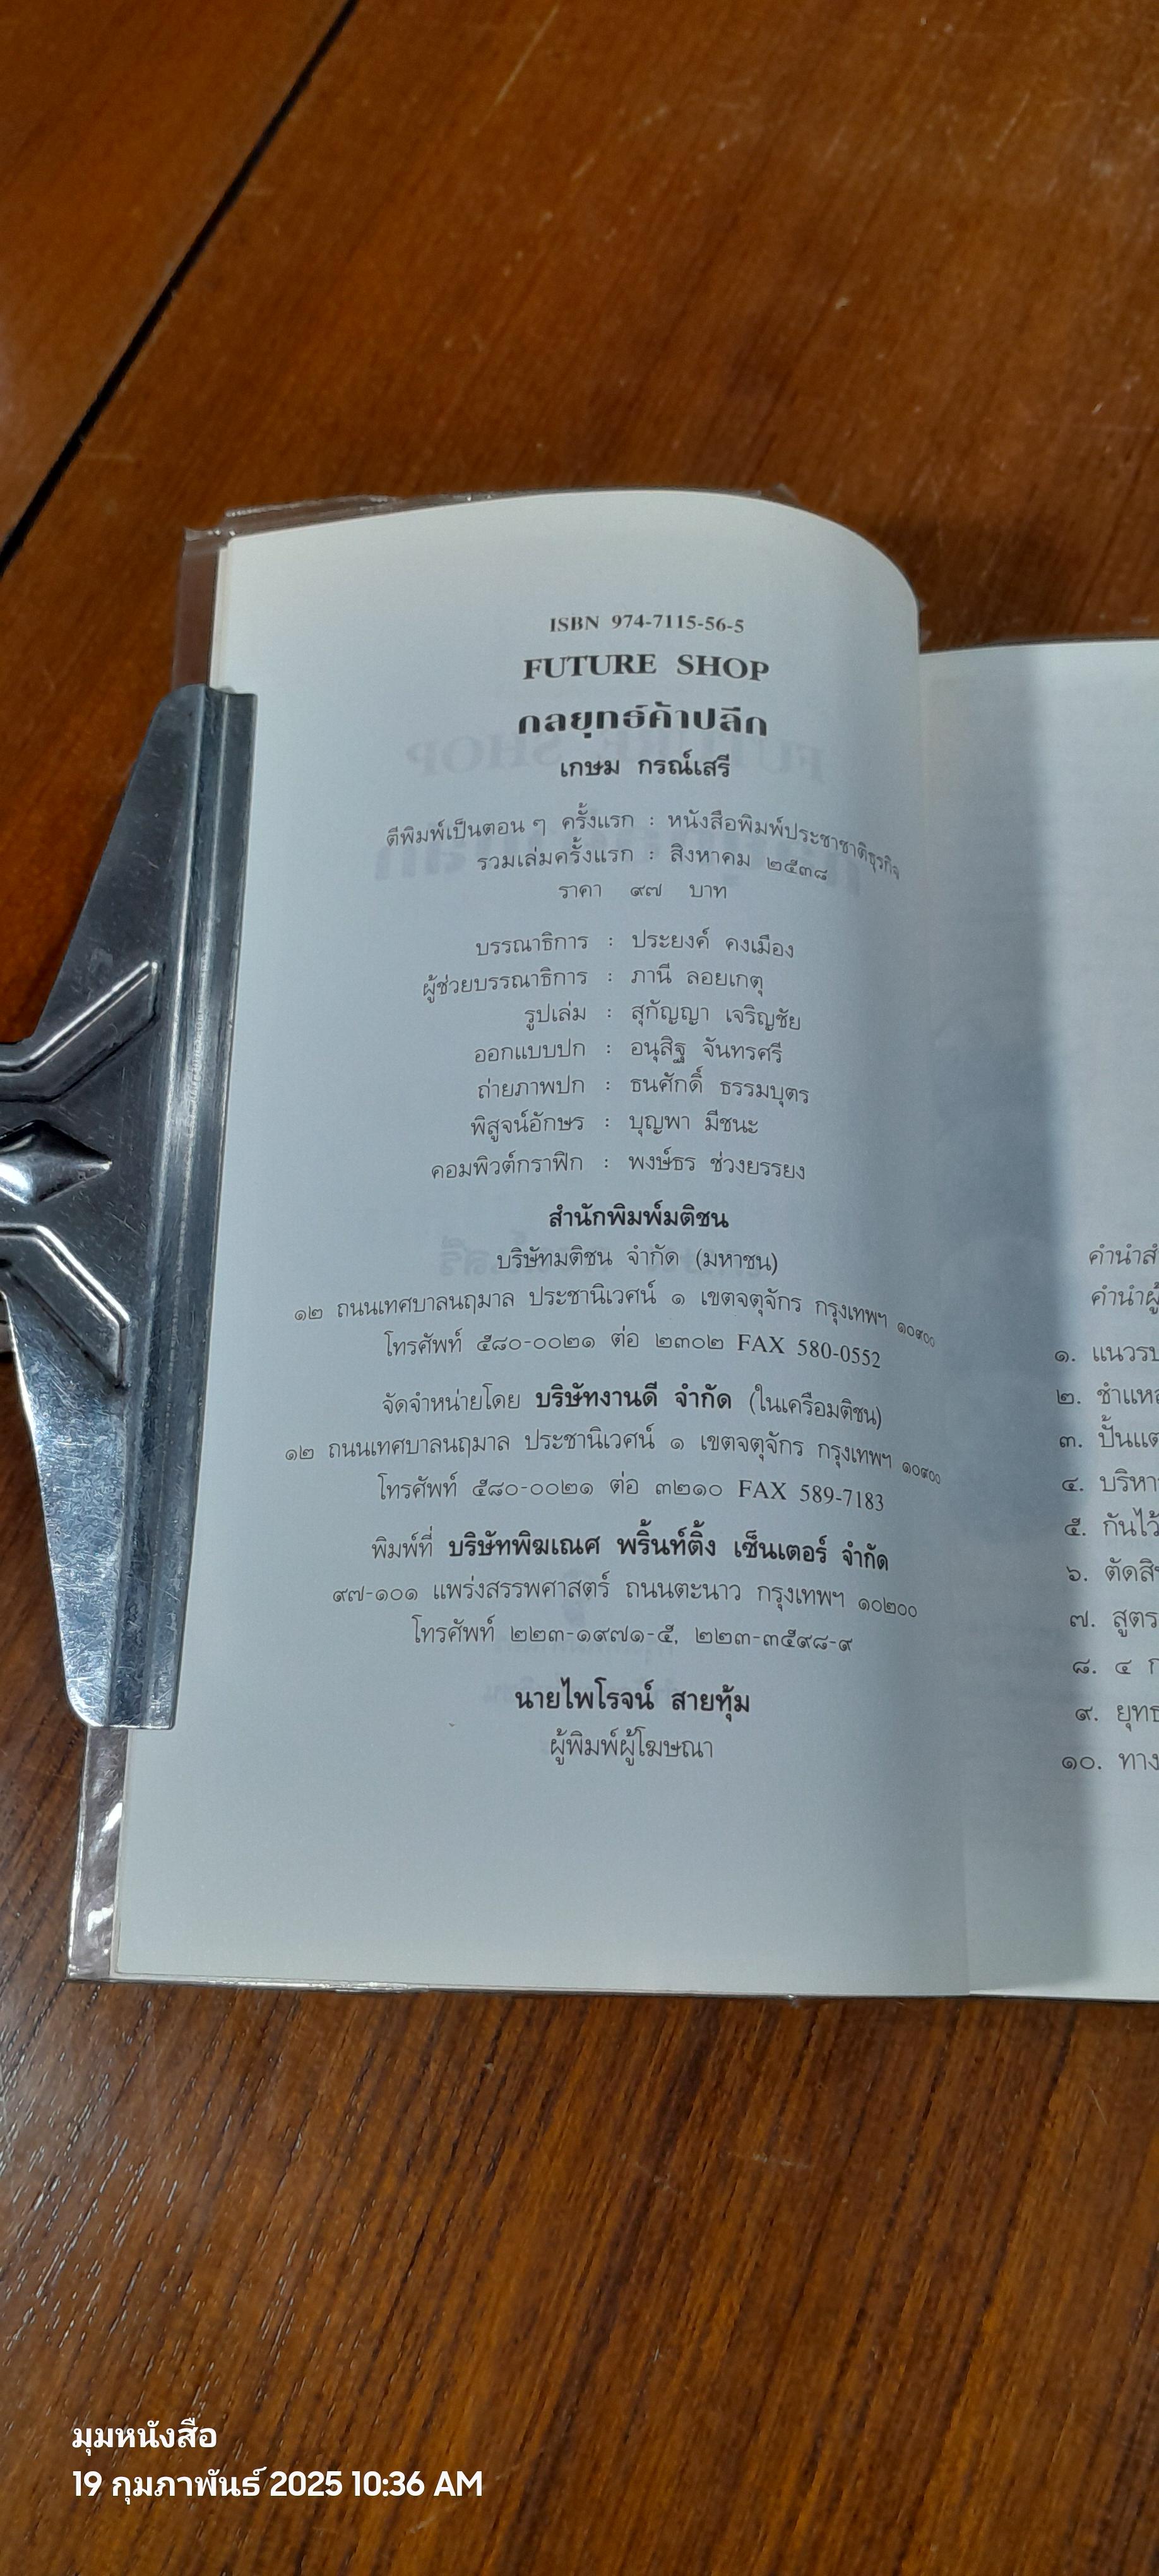 ISBN 974-7115-56-5
FUTURE SHOP
กลยุทธ์ค้าปลีก
เกษม กรณ์เสรี
ตีพิมพ์เป็นตอน ๆ ครั้งแรก : หนังสือพิมพ์ประชาชาติธุรกิจ
รวมเล่มครั้งแรก : สิงหาคม ๒๕๓๘
ราคา ๙๗ บาท
บรรณาธิการ : ประยงค์ คงเมือง
ผู้ช่วยบรรณาธิการ : ภานี ลอยเกตุ
รูปเล่ม : สุกัญญา เจริญชัย
ออกแบบปก : อนุสิฐ จันทรศรี
ถ่ายภาพปก : ธนศักดิ์ ธรรมบุตร
พิสูจน์อักษร : บุญพา มีชนะ
คอมพิวต์กราฟิก : พงษ์ธร ช่วงยรรยง
สำนักพิมพ์มติชน
บริษัทมติชน จำกัด (มหาชน)
๑๒ ถนนเทศบาลนฤมาล ประชานิเวศน์ ๑ เขตจตุจักร กรุงเทพฯ ๑๐๙๐๐
โทรศัพท์ ๕๘๐-๐๐๒๑ ต่อ ๒๓๐๒ FAX 580-0552
จัดจำหน่ายโดย บริษัทงานดี จำกัด (ในเครือมติชน)
๑๒ ถนนเทศบาลนฤมาล ประชานิเวศน์ ๑ เขตจตุจักร กรุงเทพฯ ๑๐๙๐๐
โทรศัพท์ ๕๘๐-๐๐๒๑ ต่อ ๓๒๑๐ FAX 589-7183
พิมพ์ที่ บริษัทพิฆเณศ พริ้นท์ติ้ง เซ็นเตอร์ จำกัด
๙๗-๑๐๑ แพร่งสรรพศาสตร์ ถนนตะนาว กรุงเทพฯ ๑๐๒๐๐
โทรศัพท์ ๒๒๓-๑๙๗๑-๕, ๒๒๓-๓๕๙๘-๙
นายไพโรจน์ สายทุ้ม
ผู้พิมพ์ผู้โฆษณา
คำนำสำ
คำนำผู้
๑. แนวรบ
๒. ชำแหล
๓. ปั้นแต
๔. บริหา
๕. กันไว้
๖. ตัดสิน
๗. สูตร
๘. ๔ ก
๙. ยุทธ
๑๐. ทาง
มุมหนังสือ
19 กุมภาพันธ์ 2025 10:36 AM